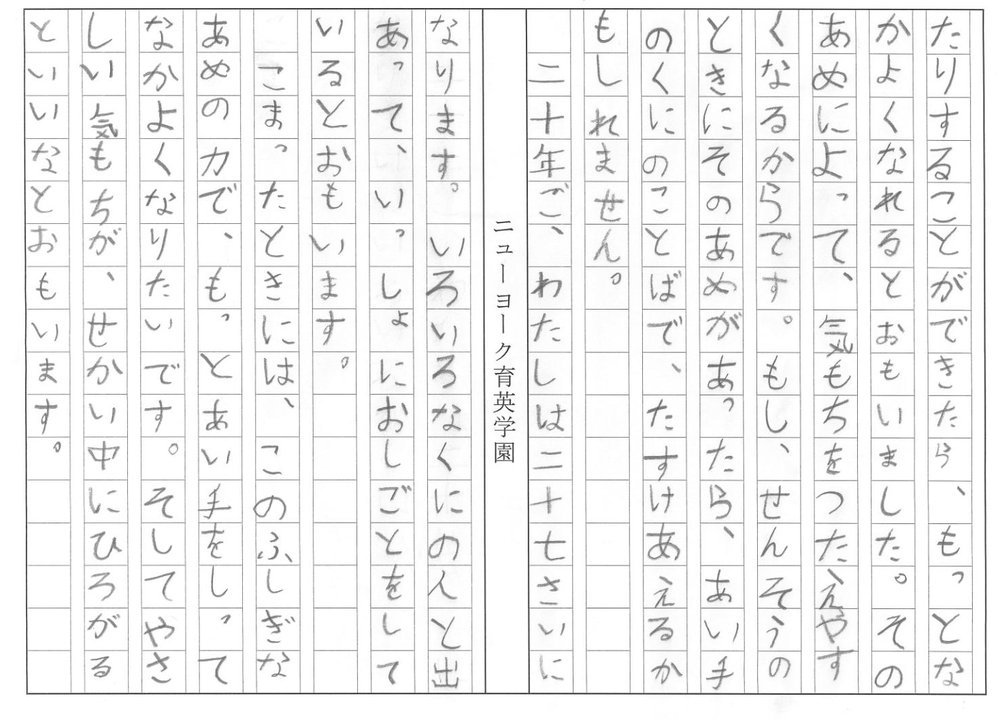 たりすることができたら、もっとな
かよくなれるとおもいました。その
あめによって、気もちをつたえやす
くなるからです。もし、せんそうの
ときにそのあめがあったら、あい手
のくにのことばで、たすけあえるか
もしれません。
二十年ご、わたしは二十七さいに
ニューヨーク育英学園
なります。いろいろなくにの人と出
あって、いっしょにおしごとをして
いるとおもいます。
こまったときには、このふしぎな
あめの力で、もっとあい手をしって
なかよくなりたいです。そしてやさ
しい気もちが、せかい中にひろがる
といいなとおもいます。